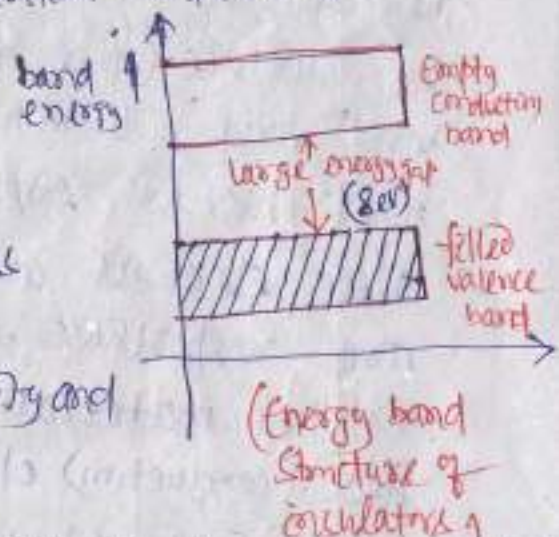 band
energy
Empty
conduction
band
large energy gap
(8ev)
filled
valence
band
and
(Energy band
Structure of
insulators